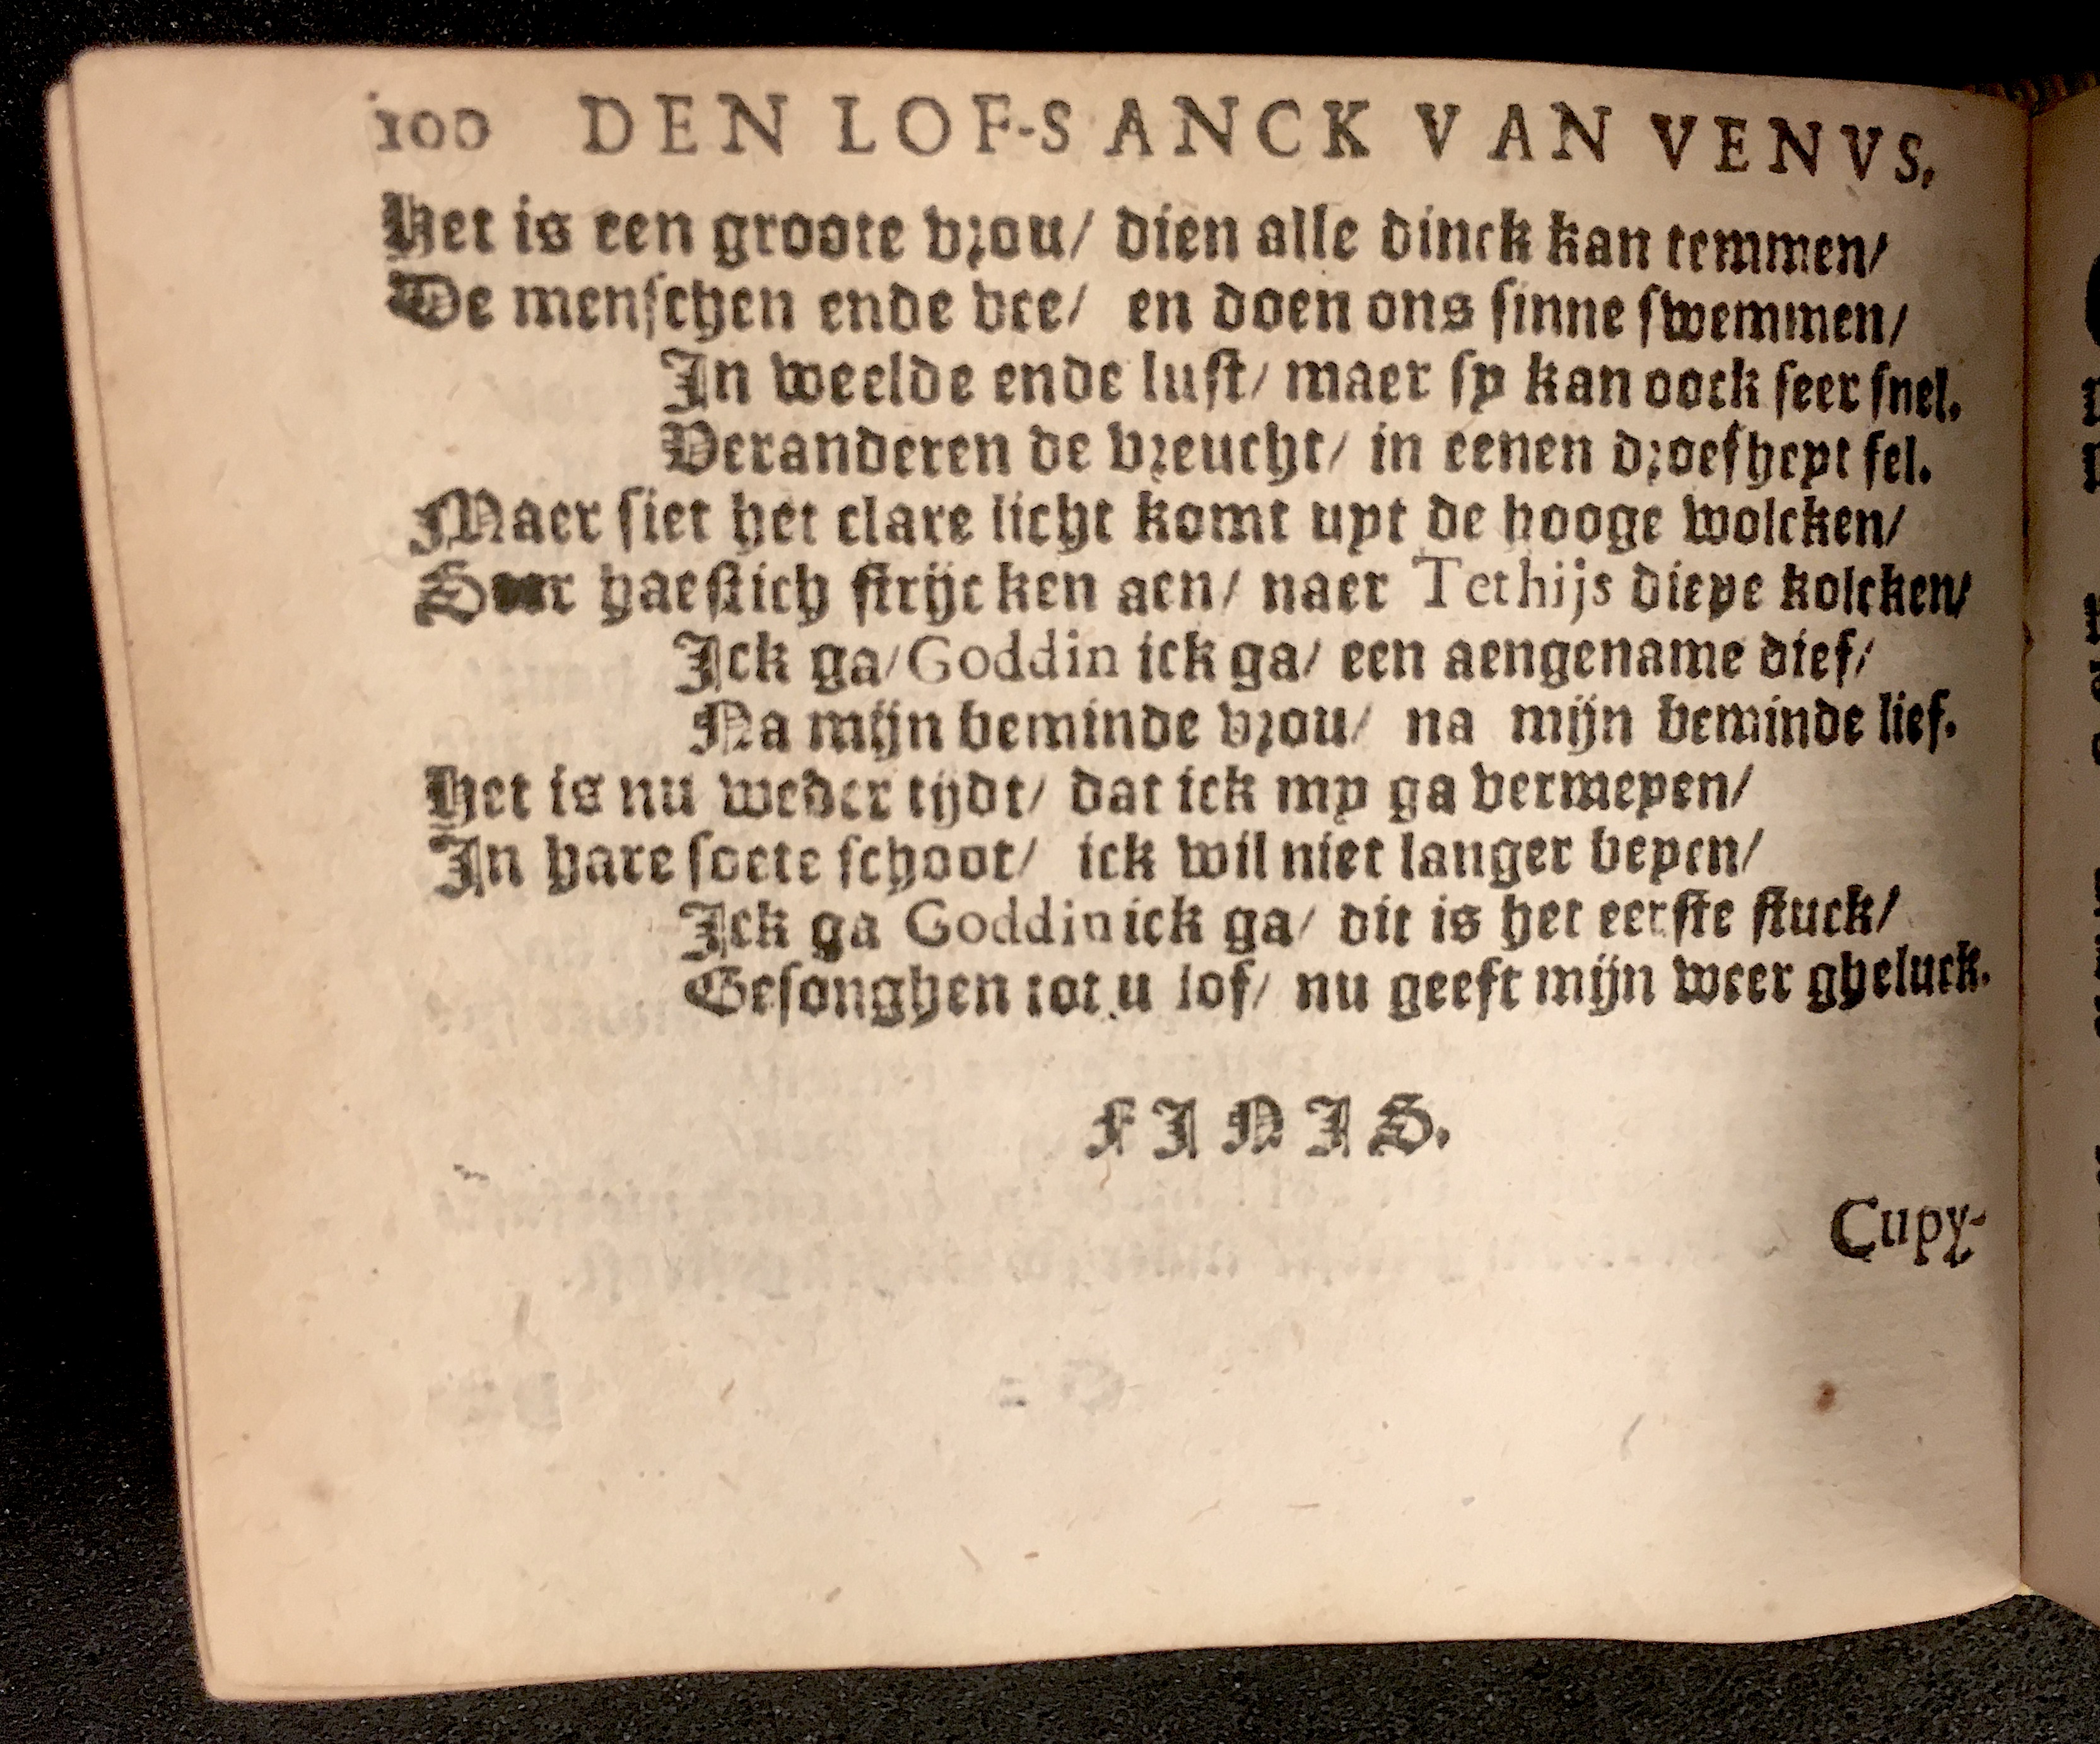 100 DEN LOF-SANCK VAN VENVS.
Het is een groote vrou/ dien alle dinck kan temmen/
De menschen ende vee/ en doen ons sinne swemmen/
In weelde ende lust/ maer sy kan oock seer snel.
Veranderen de vreucht/ in eenen droefheyt fel.
Maer siet het clare licht komt uyt de hooge wolcken/
Seer haestich strijcken aen/ naer Tethijs diepe kolcken/
Ick ga/ Goddin ick ga/ een aengename dief/
Na mijn beminde vrou/ na mijn beminde lief.
Het is nu weder tijdt/ dat ick my ga vermeyen/
In hare soete schoot/ ick wil niet langer beyen/
Ick ga Goddin ick ga/ dit is het eerste stuck/
Gesonghen tot u lof/ nu geeft mijn weer gheluck.
FINIS.
Cupy-